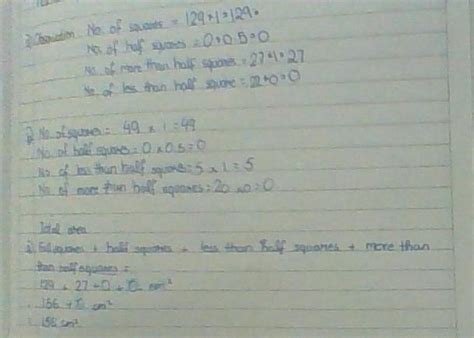 a) Observation No. of squares = 129 × 1 = 129.
No. of half squares = 0 × 0.5 = 0
No. of more than half squares = 27 × 1 = 27
No. of less than half square = 22 × 0 = 0
b) No. of squares = 49 × 1 = 49
No. of half squares = 0 × 0.5 = 0
No. of less than half squares = 5 × 1 = 5
No. of more than half squares = 20 × 0 = 0
Total area
a) Full squares + half squares + less than half squares + more than
than half squares =
129 + 27 + 0 + cm²
156 + cm²
156 cm²